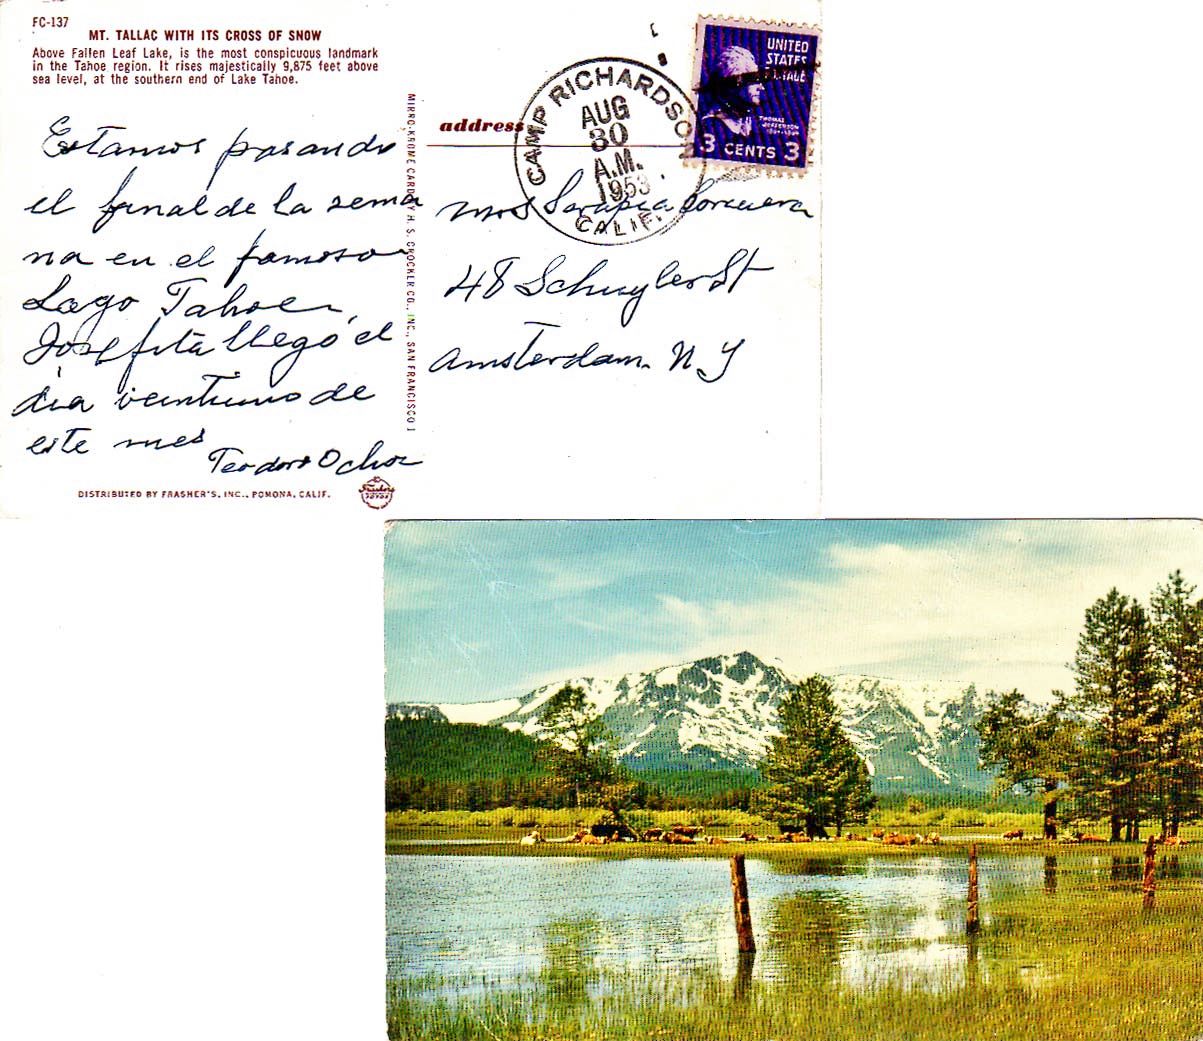 FC-137
MT. TALLAC WITH ITS CROSS OF SNOW
Above Fallen Leaf Lake, is the most conspicuous landmark
in the Tahoe region. It rises majestically 9,875 feet above
sea level, at the southern end of Lake Tahoe.
Estamos pasando
el final de la sema
na en el famoso
Lago Tahoe,
Josefita llegó el
día veintiuno de
este mes
Teodoro Ochoa
DISTRIBUTED BY FRASHER'S, INC., POMONA, CALIF.
Frashers
FOTOS
MIRRO-KROME CARD BY H. S. CROCKER CO., INC., SAN FRANCISCO 1
address
CAMP RICHARDSON
AUG
30
A.M.
1953
CALIF.
UNITED
STATES
POSTAGE
THOMAS
JEFFERSON
1801-1809
3 CENTS 3
Mrs Serapia Corcuera
48 Schuyler St
Amsterdam. N Y